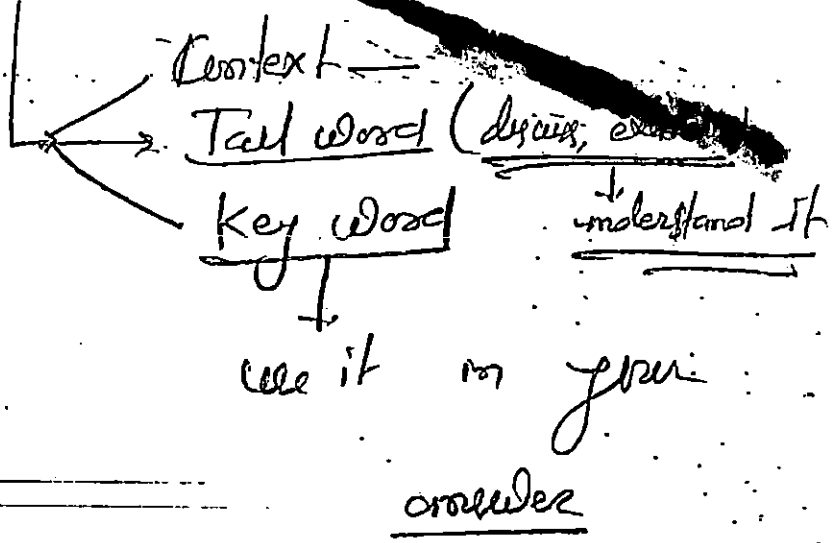 Context
Tail word (discuss,
Key word understand it
use it in your
answer